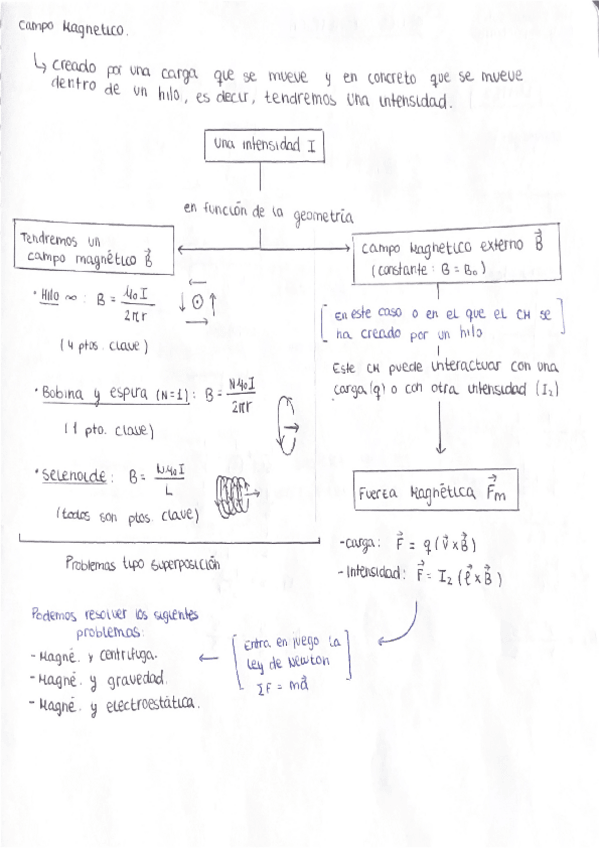 Campo Magnetico.
↳ creado por una carga que se mueve y en concreto que se mueve
dentro de un hilo, es decir, tendremos una intensidad.
Una intensidad I
en función de la geometría
Tendremos un
campo magnético B⃗
· Hilo ∞ : B = μ₀ I / 2πr
(4 ptos. clave)
· Bobina y espira (N=1) : B = N μ₀ I / 2πr
(1 pto. clave)
· Selenoide : B = N μ₀ I / L
(todos son ptos. clave)
Problemas tipo superposición
Campo Magnetico externo B⃗
(constante : B = B₀)
[En este caso o en el que el CM se
ha creado por un hilo]
Este CM puede interactuar con una
carga (q) o con otra intensidad (I₂)
Fuerza Magnética F⃗m
- carga : F⃗ = q (v⃗ x B⃗)
- Intensidad : F⃗ = I₂ (ℓ⃗ x B⃗)
[Entra en juego la
Ley de Newton
ΣF = ma⃗]
Podemos resolver los siguientes
problemas:
- Magné. y centrífuga.
- Magné. y gravedad.
- Magné. y electroestática.